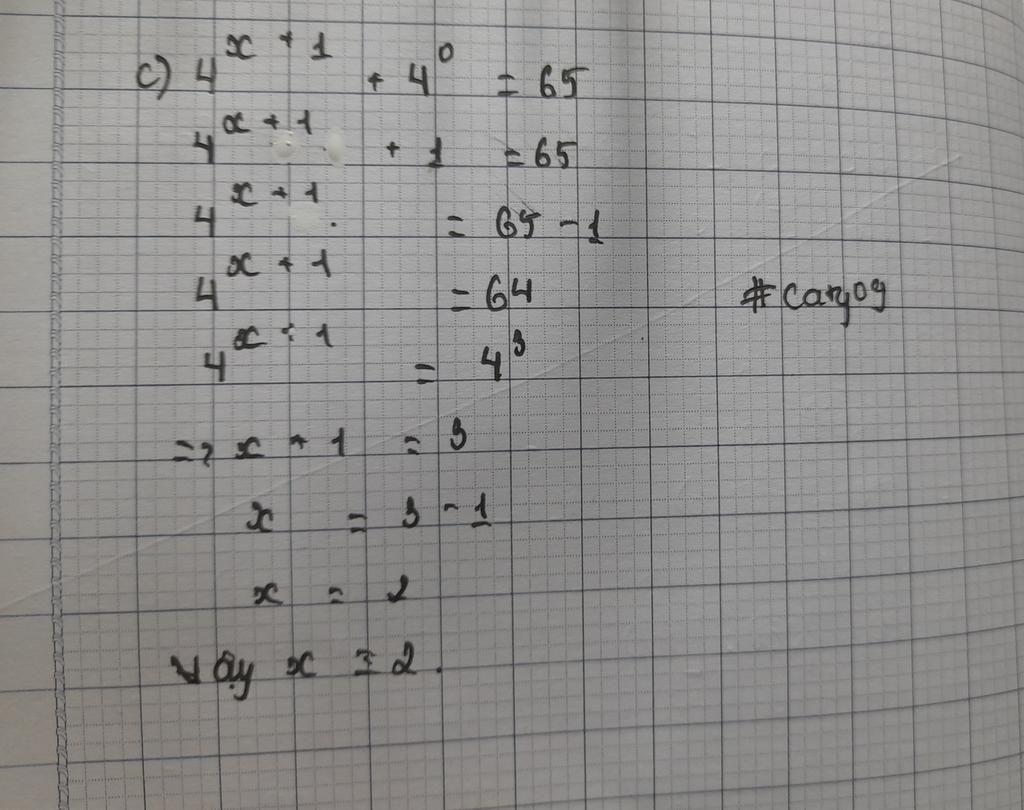 c) 4^{x + 1} + 4^0 = 65
4^{x + 1} + 1 = 65
4^{x + 1} = 65 - 1
4^{x + 1} = 64
#cargo9
4^{x + 1} = 4^3
=> x + 1 = 3
x = 3 - 1
x = 2
Vậy x = 2.